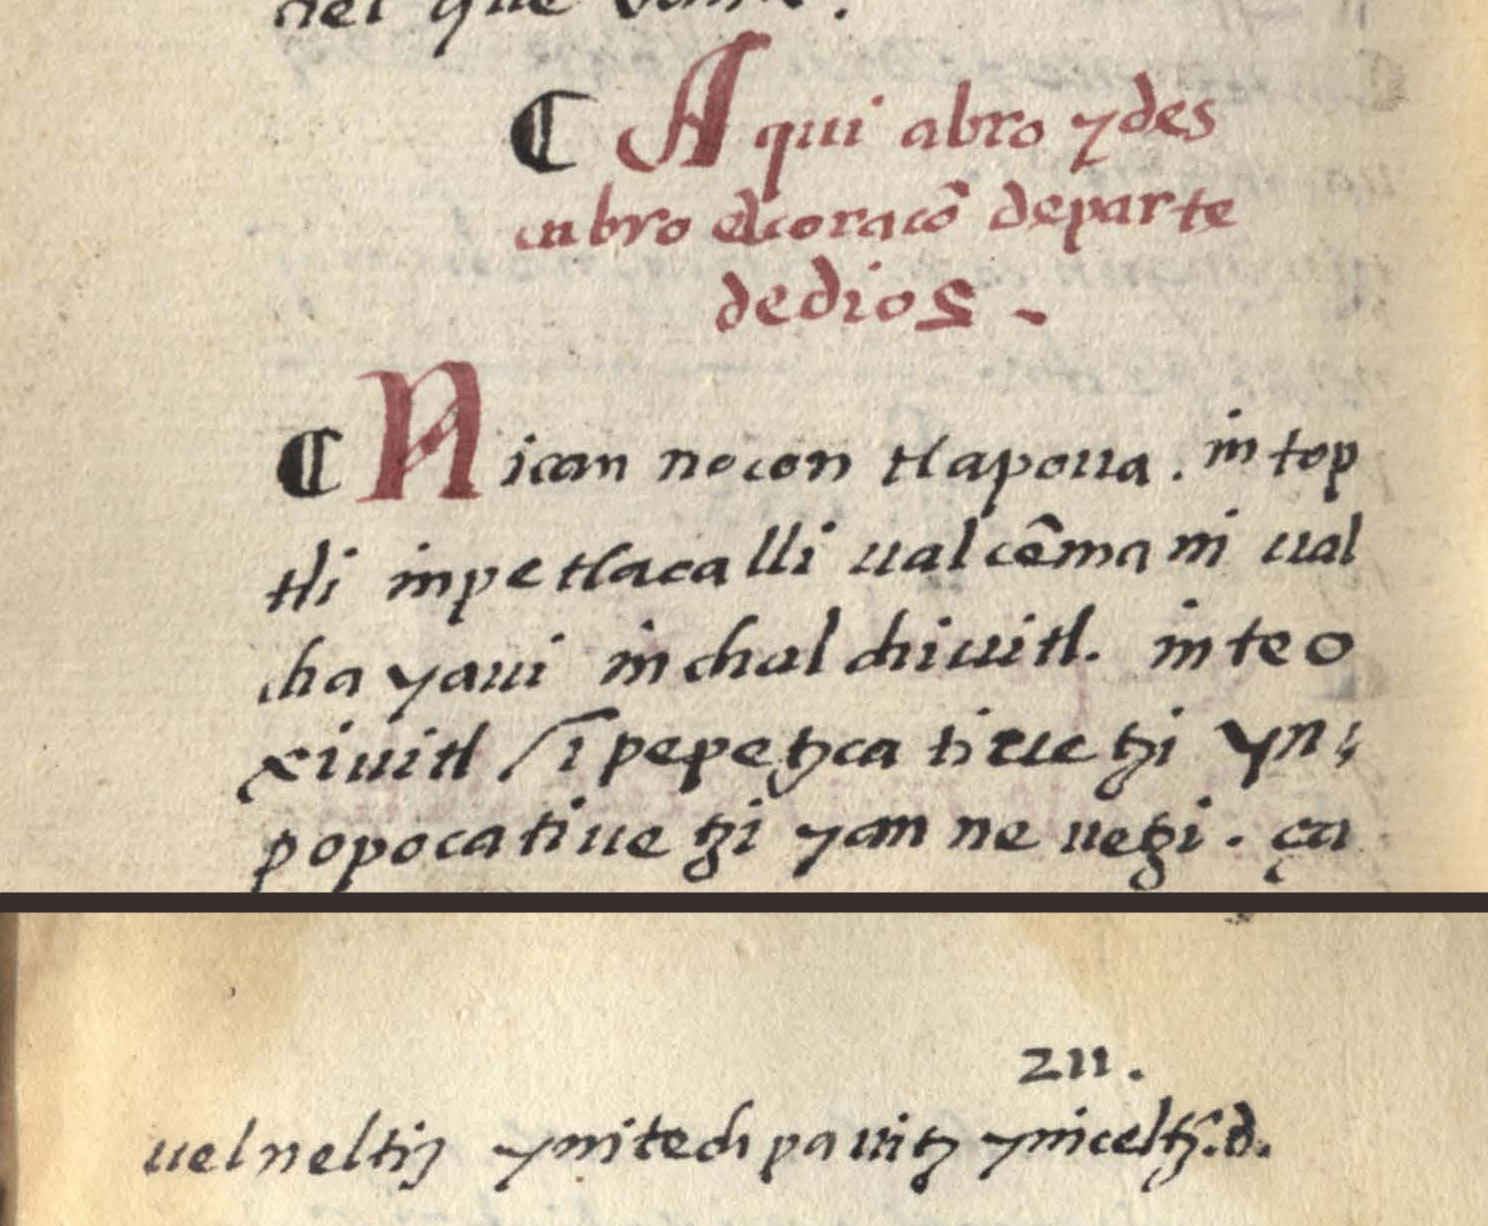 que
¶ Aqui abro y des
cubro el coraçō de parte
de dios -
¶ Nican nocon tlapoua . in top
tli in petlacalli ualcēmani ual
chayaui in chalchiuitl. in teo
xiuitl / ī pepetzca tiuetzi yn i
popoca tiuetzi yan ne uetzi . ça
211 .
uel neltiz yn itech pa uitz yn iceltzī. d.